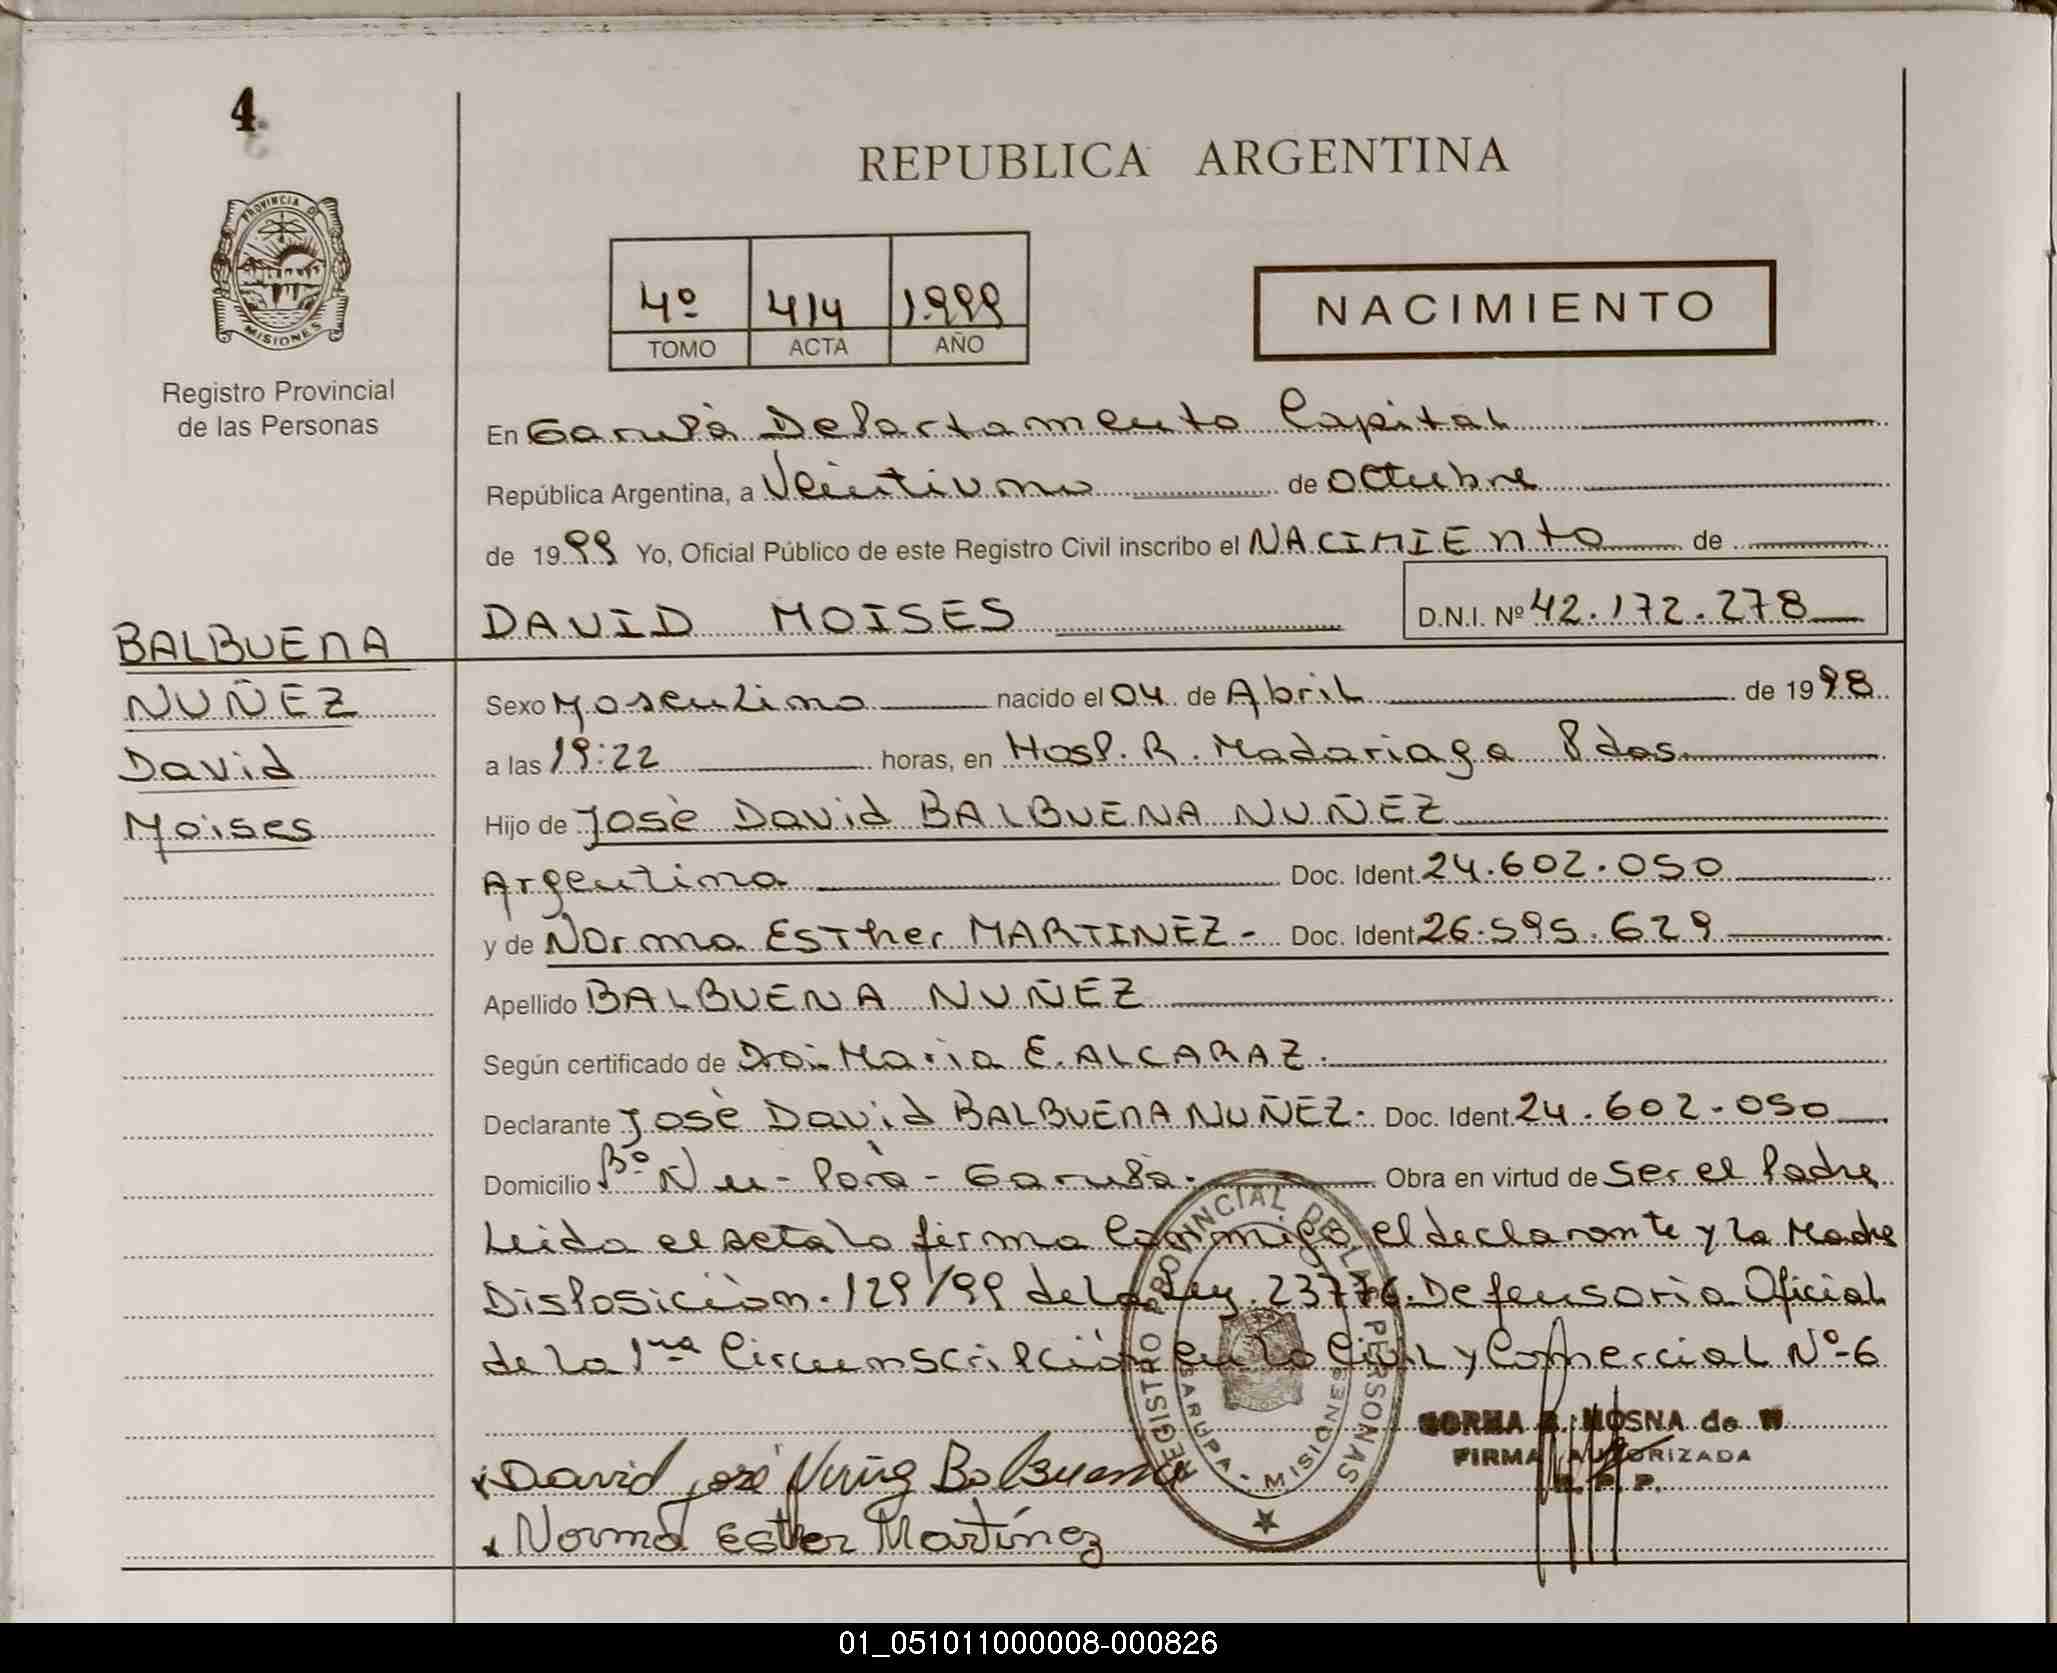 4
PROVINCIA DE
MISIONES
Registro Provincial
de las Personas
REPUBLICA ARGENTINA
4º 414 1.999
TOMO ACTA AÑO
NACIMIENTO
En Garupà Departamento Capital
República Argentina, a Veintiuno de octubre
de 1999 Yo, Oficial Público de este Registro Civil inscribo el NACIMIEnto de
DAVID MOISES D.N.I. Nº 42.172.278
BALBUEnA
NUÑEZ
David
Moises
Sexo Masculino nacido el 04 de Abril de 1998
a las 19:22 horas, en Hosp. R. Madariaga Pdas.
Hijo de José David BALBUENA NUÑEZ
Argentino Doc. Ident. 24.602.050
y de Norma Esther MARTINEZ- Doc. Ident. 26.595.629
Apellido BALBUENA NUÑEZ
Según certificado de Dra. Maria E. ALCARAZ.
Declarante José David BALBUEnA NUÑEZ. Doc. Ident. 24.602.050
Domicilio Bº Ñu-Porà-Garupà. Obra en virtud de Ser el Padre
Leida el acta la firma Conmigo el declarante y la Madre
Disposiciòn. 129/99 de la Ley. 23776. Defensoria Oficial
de la 1ra Circunscripción en lo Civil y Comercial Nº-6
REGISTRO PROVINCIAL DE LAS PERSONAS
GARUPA - MISIONES
NORMA B. MOSNA de W
FIRMA AUTORIZADA
R. P. P.
x David José Nuñez Balbuena
x Norma Esther Martínez
01_051011000008-000826